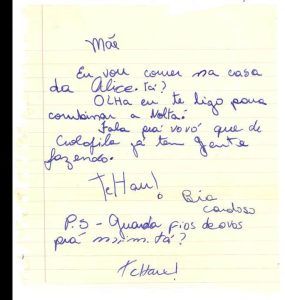 Mãe
Eu vou comer na casa
da Alice. Tá?
OLHA eu te ligo para
combinar a volta.
Fala prá vovó que de
já tem gente
fazendo.
TcHau!
Bia
Cardoso
P.S - Guarda fios de ovos
prá mim. tá?
TcHau!